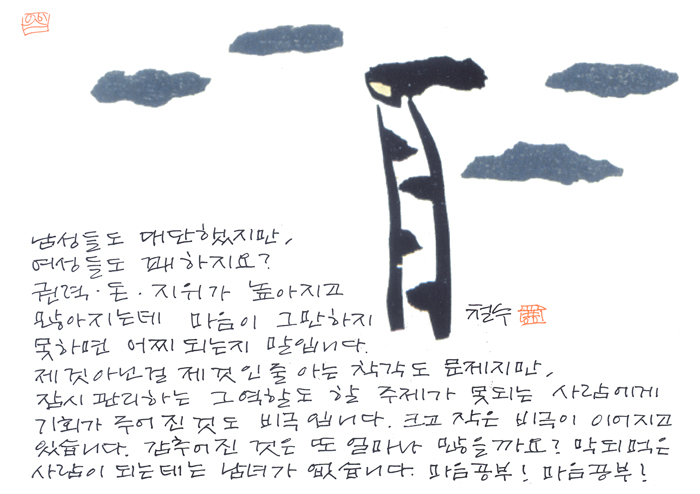 남성들도 대단했지만,
여성들도 꽤하지요?
권력·돈·지위가 높아지고
많아지는데 마음이 그만하지
철수
못하면 어찌 되는지 말입니다.
제것아닌걸 제것인줄 아는 착각도 문제지만,
잠시 관리하는 그역할도 할 주제가 못되는 사람에게
기회가 주어진것도 비극입니다. 크고 작은 비극이 이어지고
있습니다. 감추어진 것은 또 얼마나 많을까요? 막되먹은
사람이 되는데는 남녀가 없습니다. 마음공부! 마음공부!